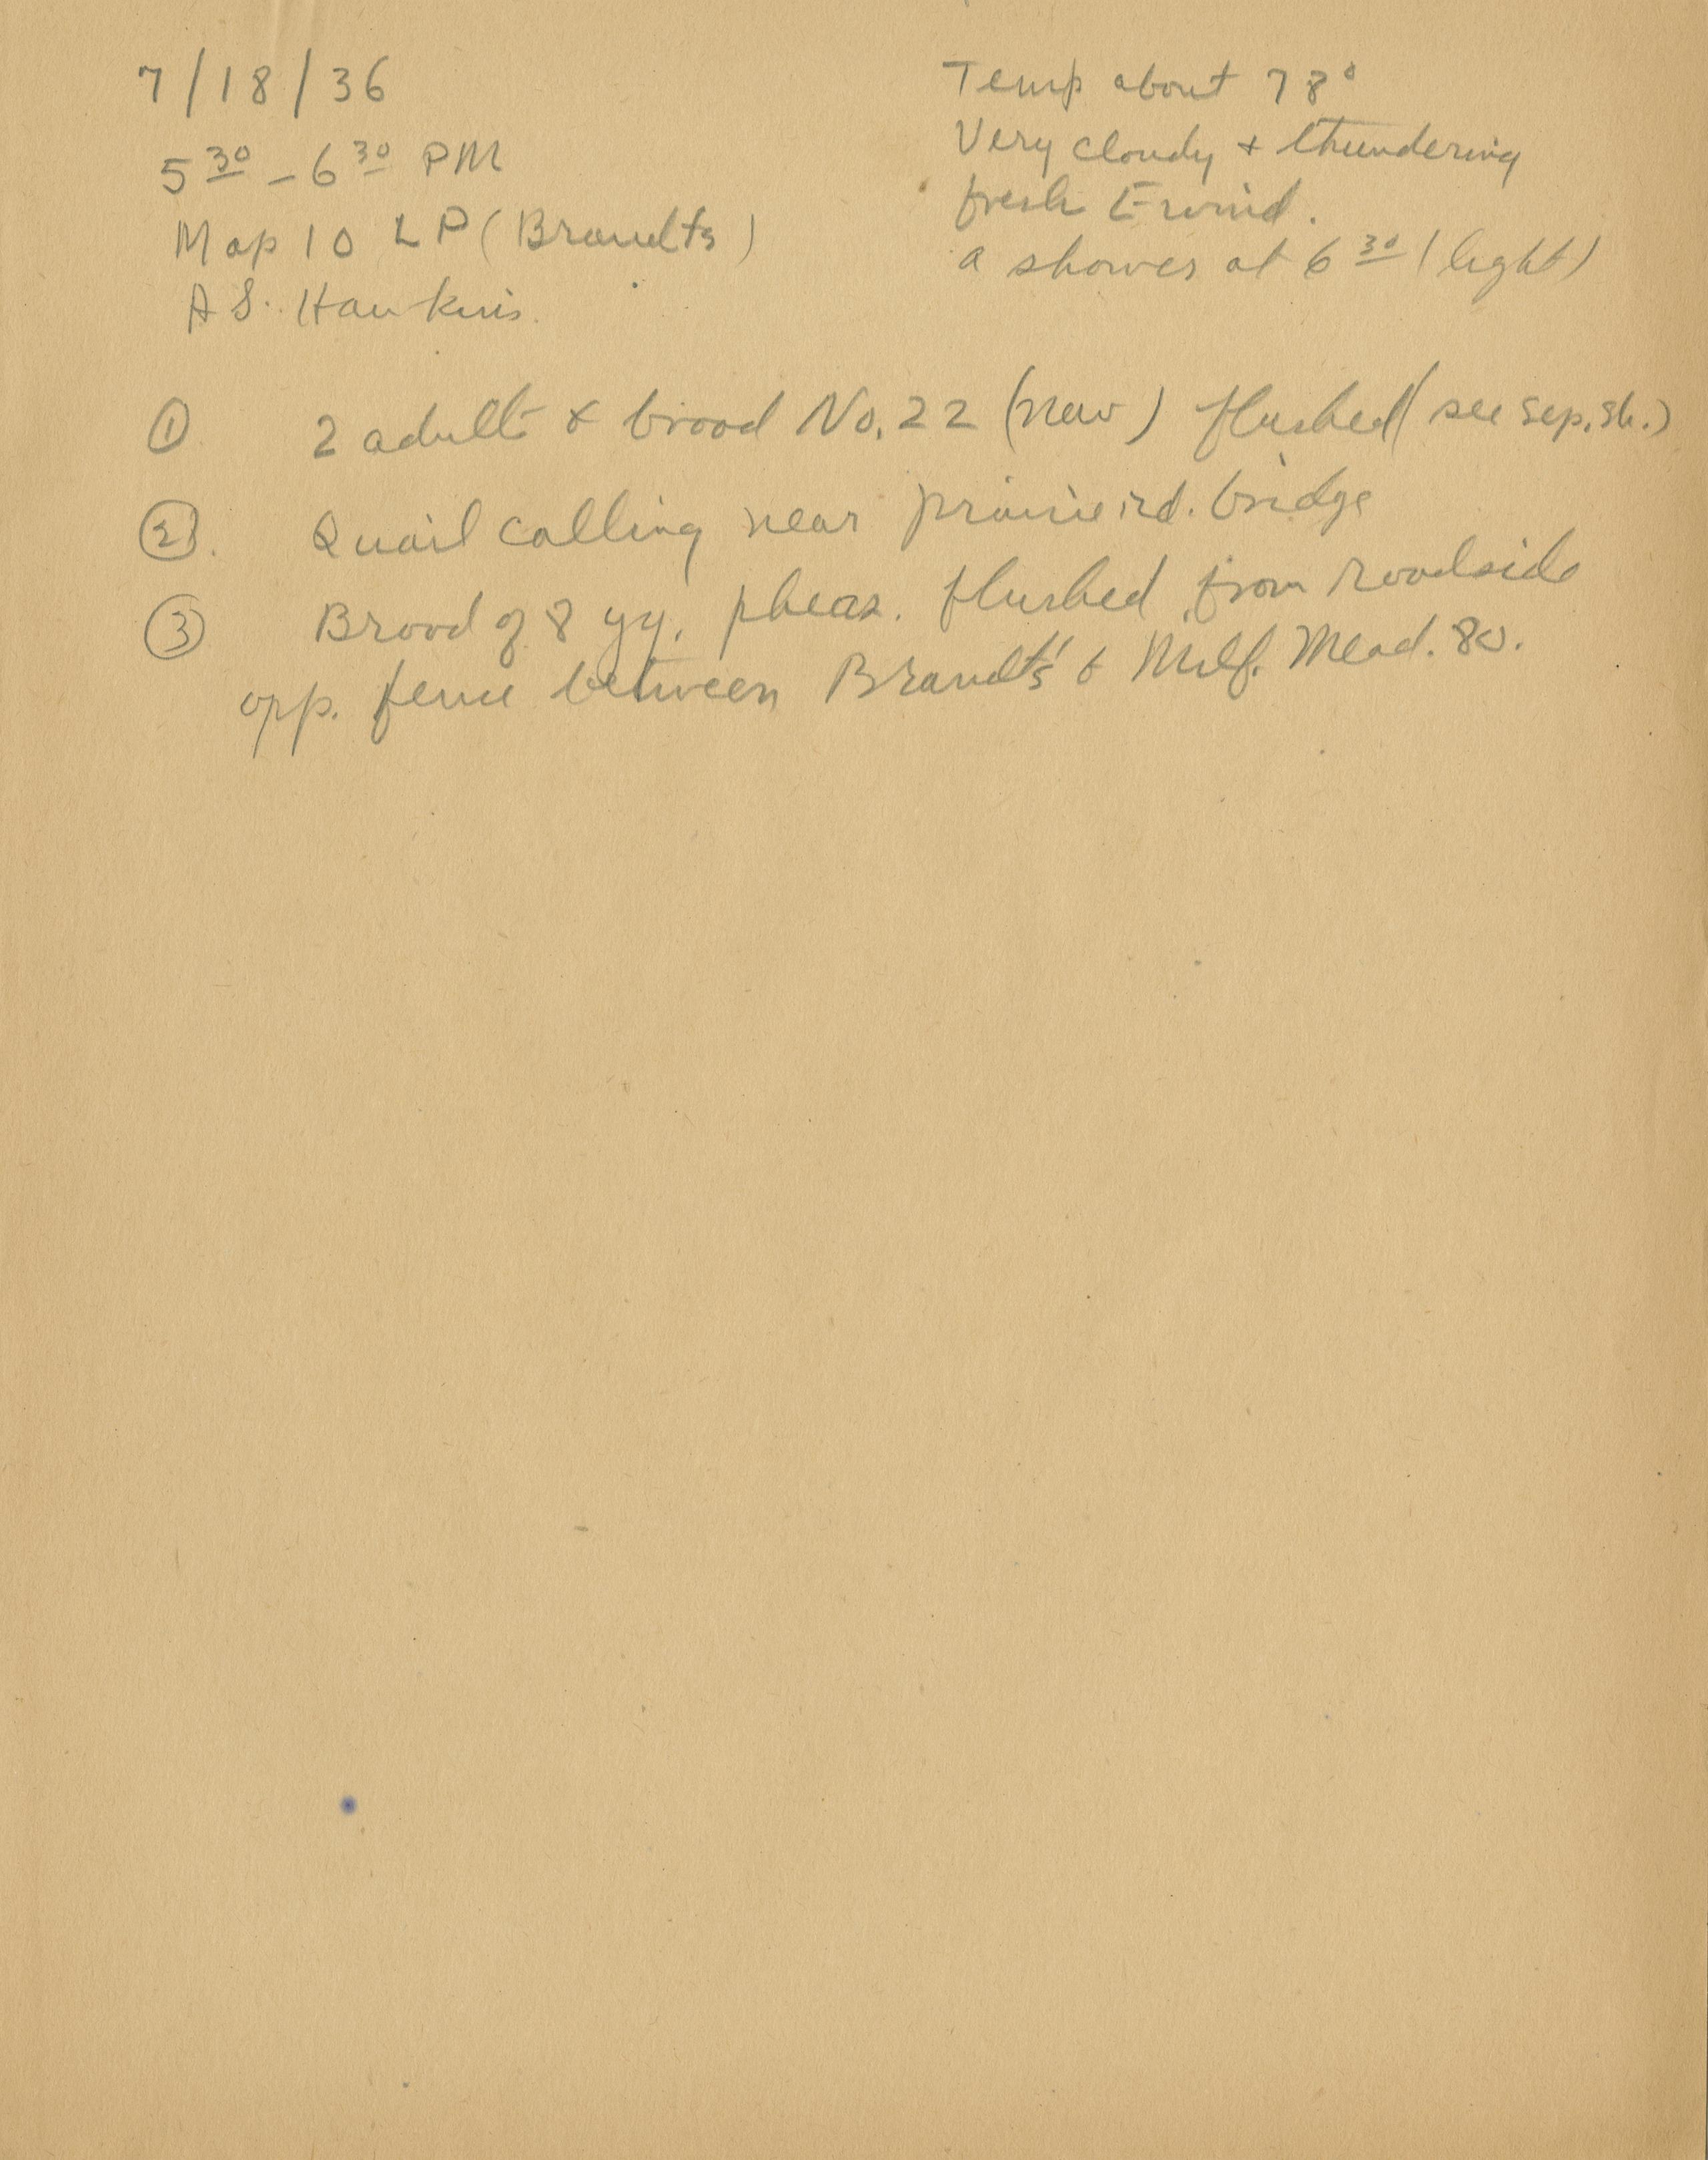 7/18/36
5 30 - 6 30 PM
Map 10 LP (Brandts)
A S. Hawkins.
Temp about 78°
Very cloudy & thundering
fresh E wind.
a shower at 6 30 (light)
① 2 adults & brood No. 22 (new) flushed (see sep. sh.)
② Quail calling near prairie rd. bridge
③ Brood of 8 yy. pheas. flushed from roadside
opp. fence between Brandt's & Milf. Mead. 80.